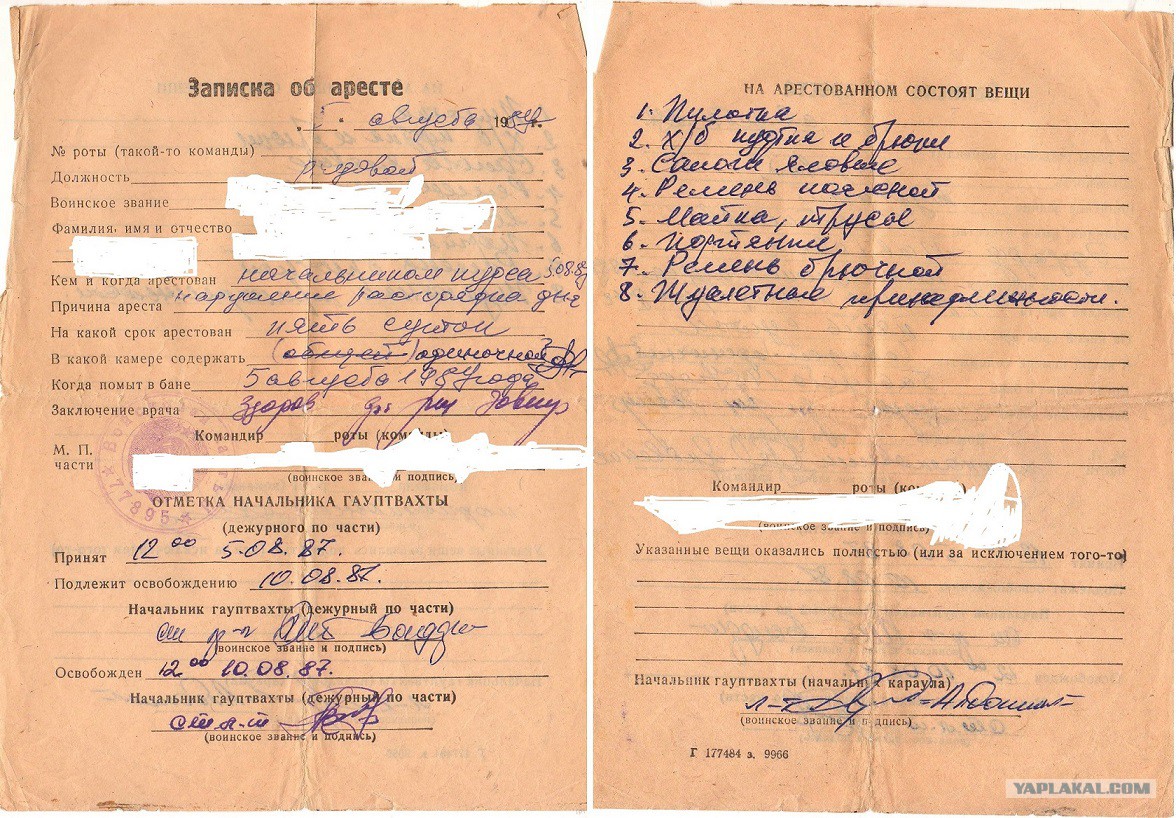 Записка об аресте
" " августа 19 г.
№ роты (такой-то команды)
Должность рядовой
Воинское звание
Фамилия, имя и отчество
Кем и когда арестован начальником курса 5.08.87
Причина ареста нарушение распорядка дня
На какой срок арестован пять суток
В какой камере содержать (общей) одиночной
Когда помыт в бане 5 августа 1987 года
Заключение врача Здоров
Командир роты (команды)
М. П.
части
(воинское звание и подпись)
77895
ОТМЕТКА НАЧАЛЬНИКА ГАУПТВАХТЫ
(дежурного по части)
Принят 12 00 5.08.87.
Подлежит освобождению 10.08.87.
Начальник гауптвахты (дежурный по части)
(воинское звание и подпись)
Освобожден 12 00 10.08.87.
Начальник гауптвахты (дежурный по части)
(воинское звание и подпись)
НА АРЕСТОВАННОМ СОСТОЯТ ВЕЩИ
1. Пилотка
2. Х/б куртка и брюки
3. Сапоги яловые
4. Ремень поясной
5. Майка, трусы
6. Портянки,
7. Ремень брючной
8. Туалетные принадлежности.
Командир роты
(воинское звание и подпись)
Указанные вещи оказались полностью (или за исключением того-то)
Начальник гауптвахты (начальник караула)
л-т
(воинское звание и подпись)
Г 177484 з. 9966
YAPLAKAL.COM